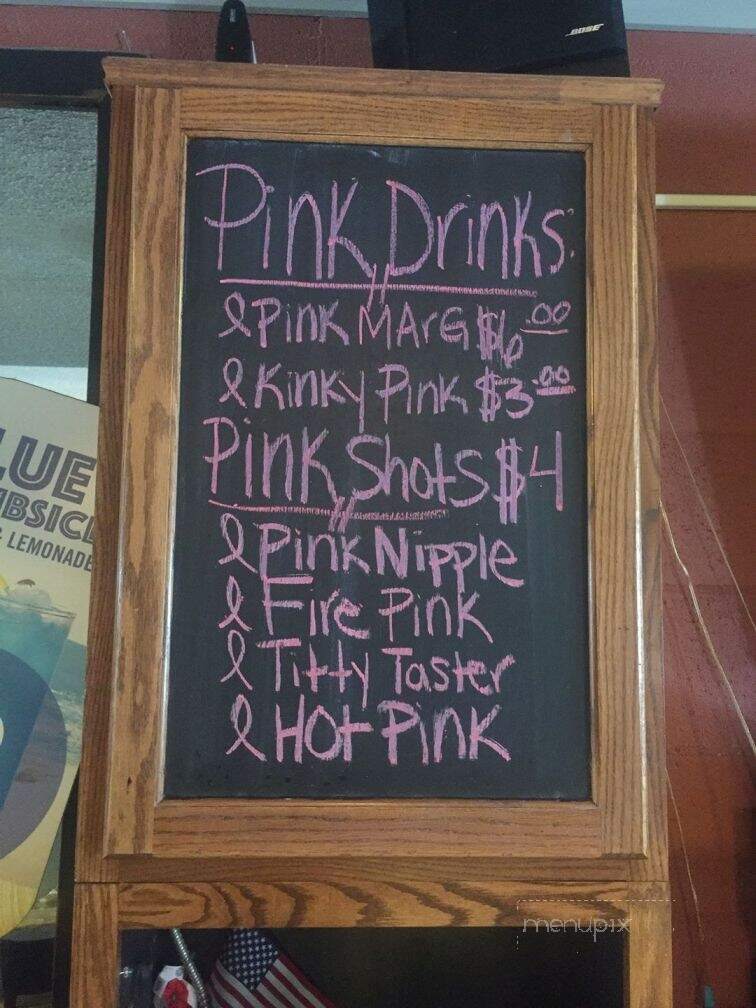 BOSE
Pink Drinks:
Pink MArG $6.00
Kinky Pink $3.00
Pink Shots $4
Pink Nipple
Fire Pink
Titty Taster
Hot Pink
LUE
MBSICL
& LEMONADE
menupix